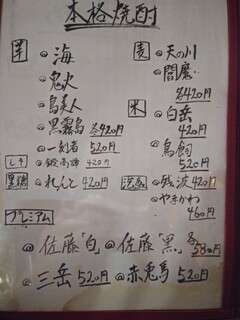 本格焼酎
芋
海
鬼火
島美人
黒霧島 各420円
一刻者 520円
しそ
鍛高譚 420円
黒糖
れんと 420円
麦
天の川
閻魔
各420円
米
白岳
420円
鳥飼
520円
泡盛
残波 420円
やまかわ
460円
プレミアム
佐藤「白」 佐藤「黒」 各580円
三岳 520円 赤兎馬 520円